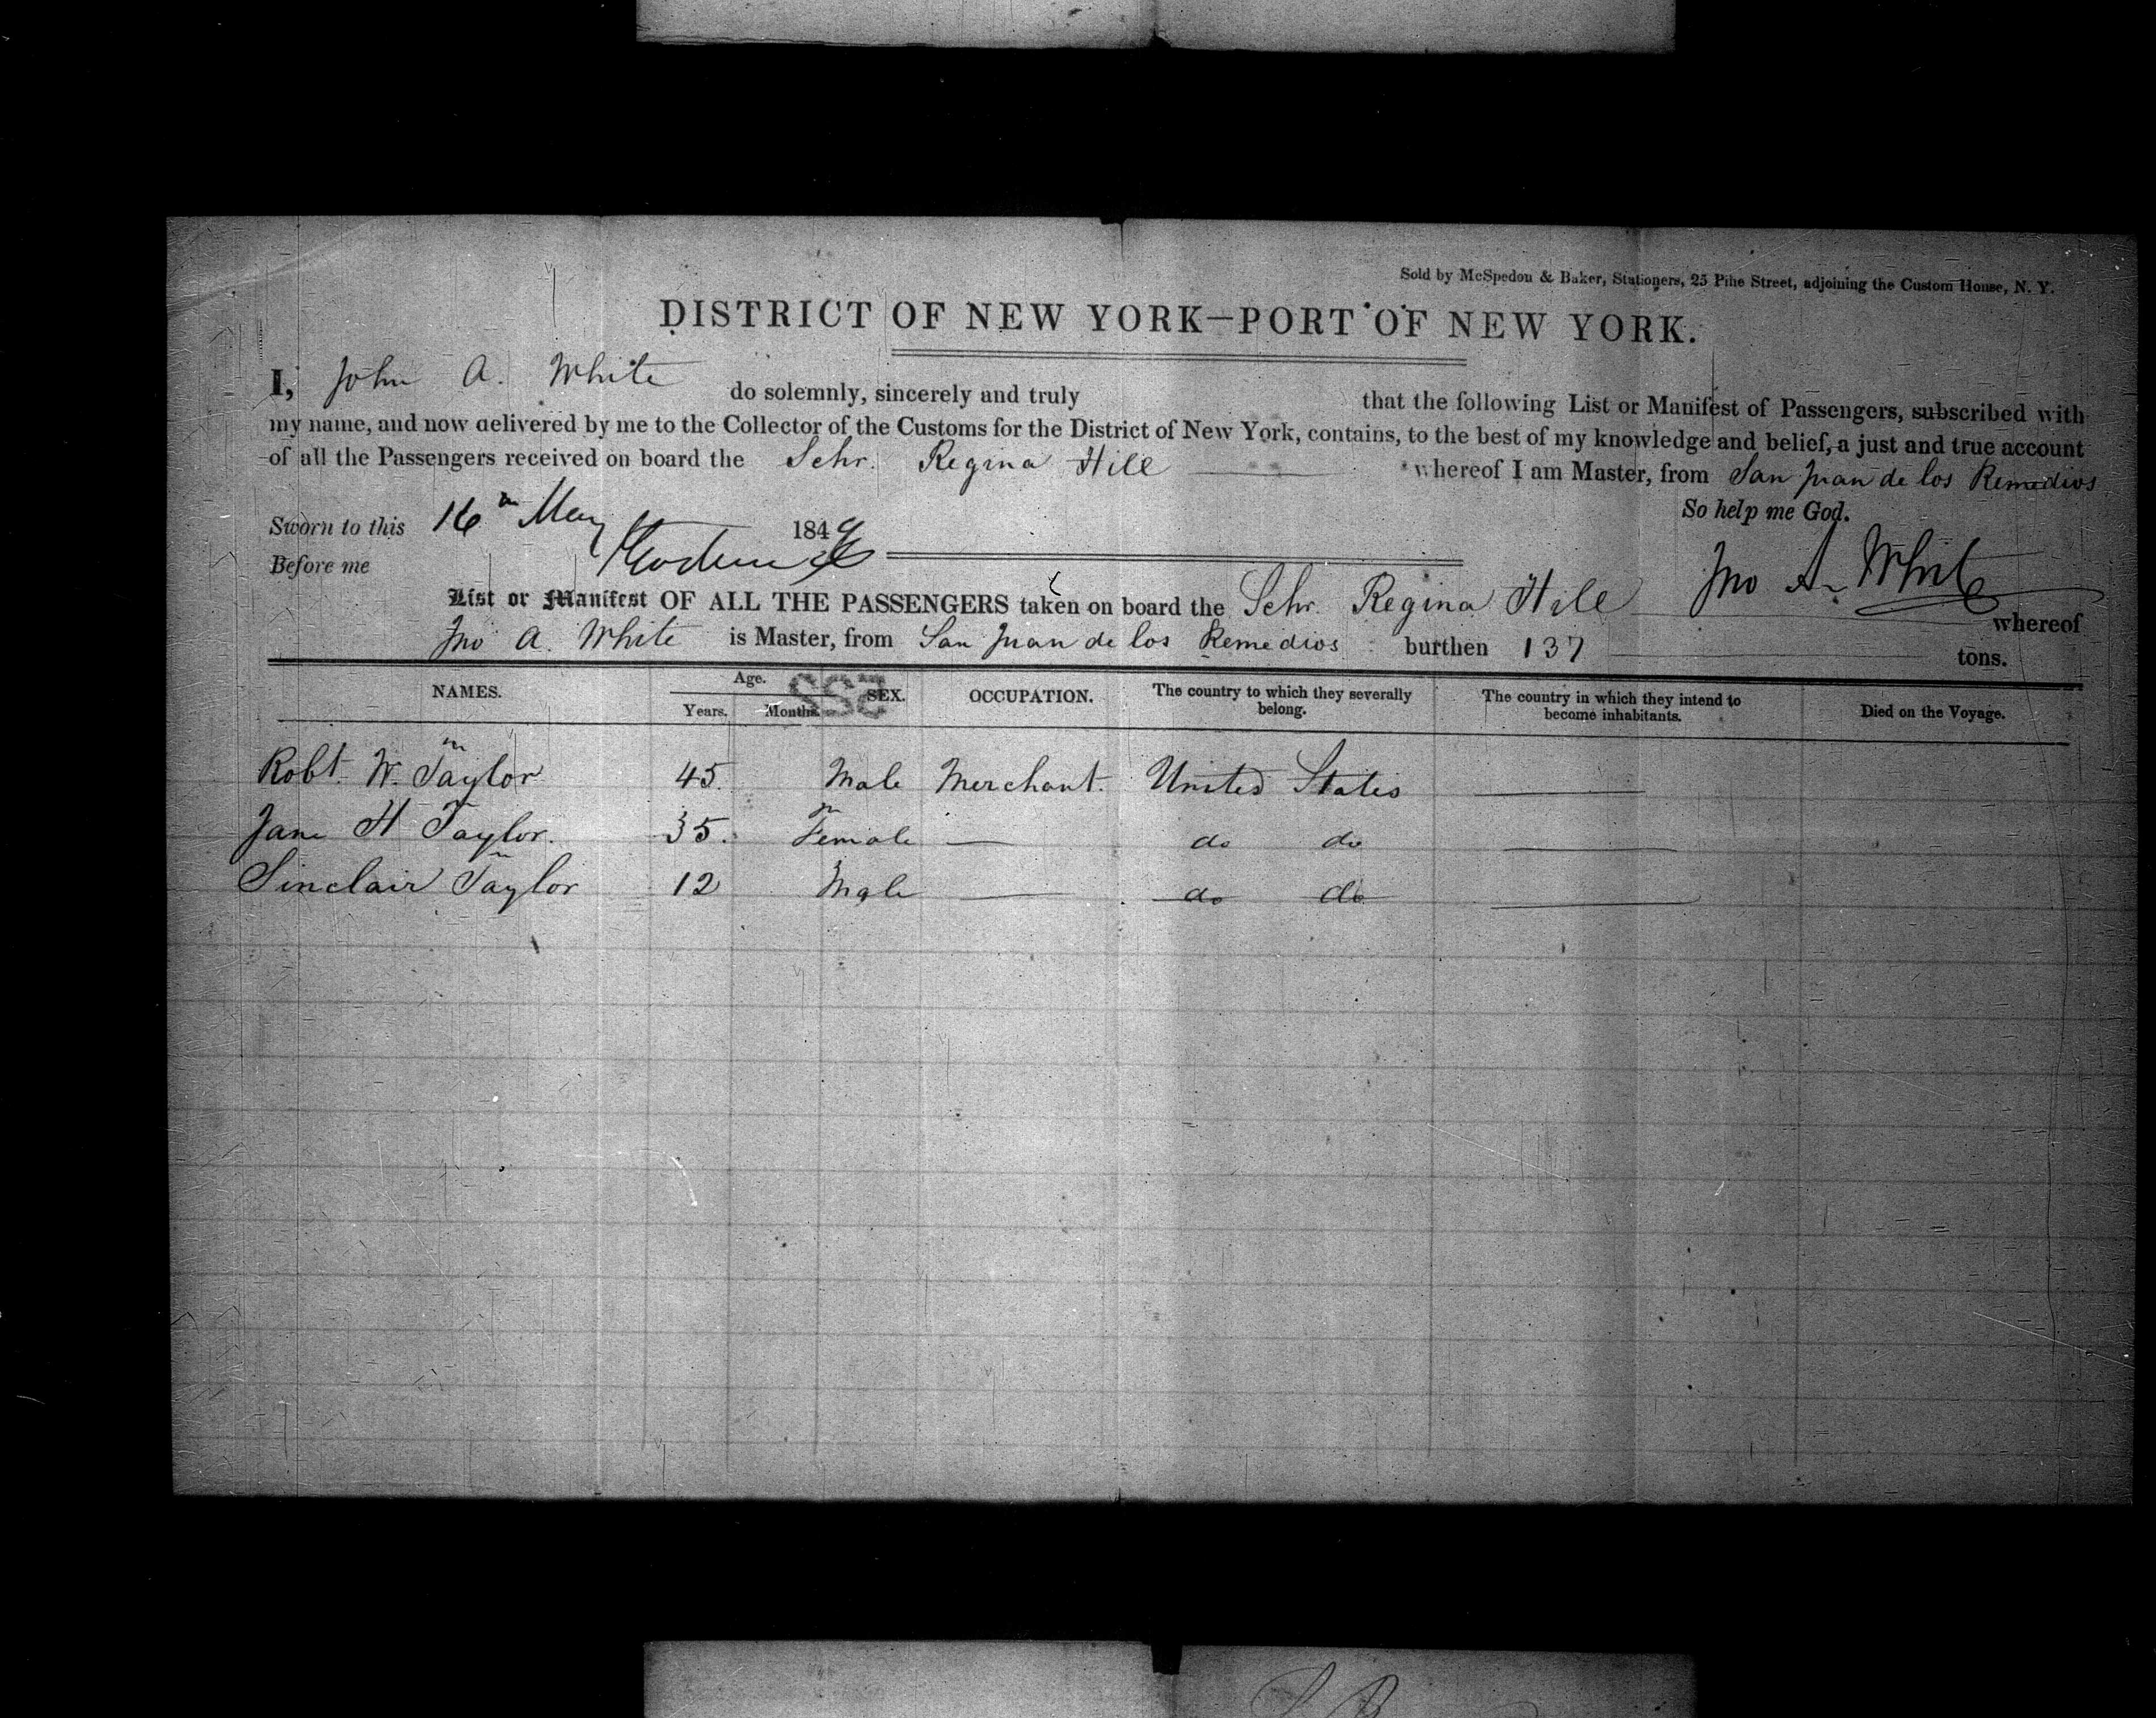 Sold by McSpedon & Baker, Stationers, 25 Pine Street, adjoining the Custom House, N. Y.
DISTRICT OF NEW YORK—PORT OF NEW YORK.
I, John A. White do solemnly, sincerely and truly that the following List or Manifest of Passengers, subscribed with
my name, and now delivered by me to the Collector of the Customs for the District of New York, contains, to the best of my knowledge and belief, a just and true account
of all the Passengers received on board the Schr. Regina Hill whereof I am Master, from San Juan de los Remedios
So help me God.
Sworn to this 16th May 1849
Before me
Jno A. White
List or Manifest OF ALL THE PASSENGERS taken on board the Schr. Regina Hill whereof
Jno A. White is Master, from San Juan de los Remedios burthen 137 tons.
NAMES. Age. Years. Months. SEX. OCCUPATION. The country to which they severally belong. The country in which they intend to become inhabitants. Died on the Voyage.
522
Robt. W. Taylor 45. Male Merchant. United States
Jane H Taylor. 35. Female — do do
Sinclair Taylor 12 Male — do do